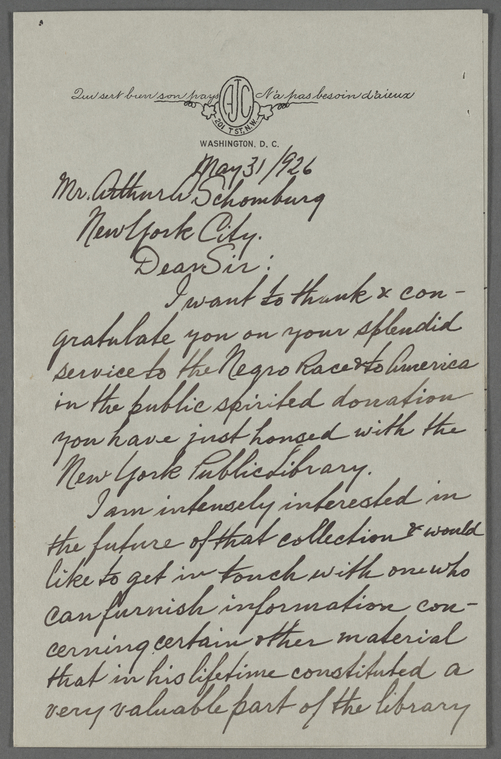 Qui sert bien son pays N'a pas besoin d'aieux
AJC
201 T ST. N.W.
WASHINGTON, D. C.
May 31/926
Mr. Arthur A Schomburg
New York City.
Dear Sir:
I want to thank & con-
gratulate you on your splendid
service to the Negro Race & to America
in the public spirited donation
you have just housed with the
New York Public Library.
I am intensely interested in
the future of that collection & would
like to get in touch with one who
can furnish information con-
cerning certain other material
that in his lifetime constituted a
very valuable part of the library